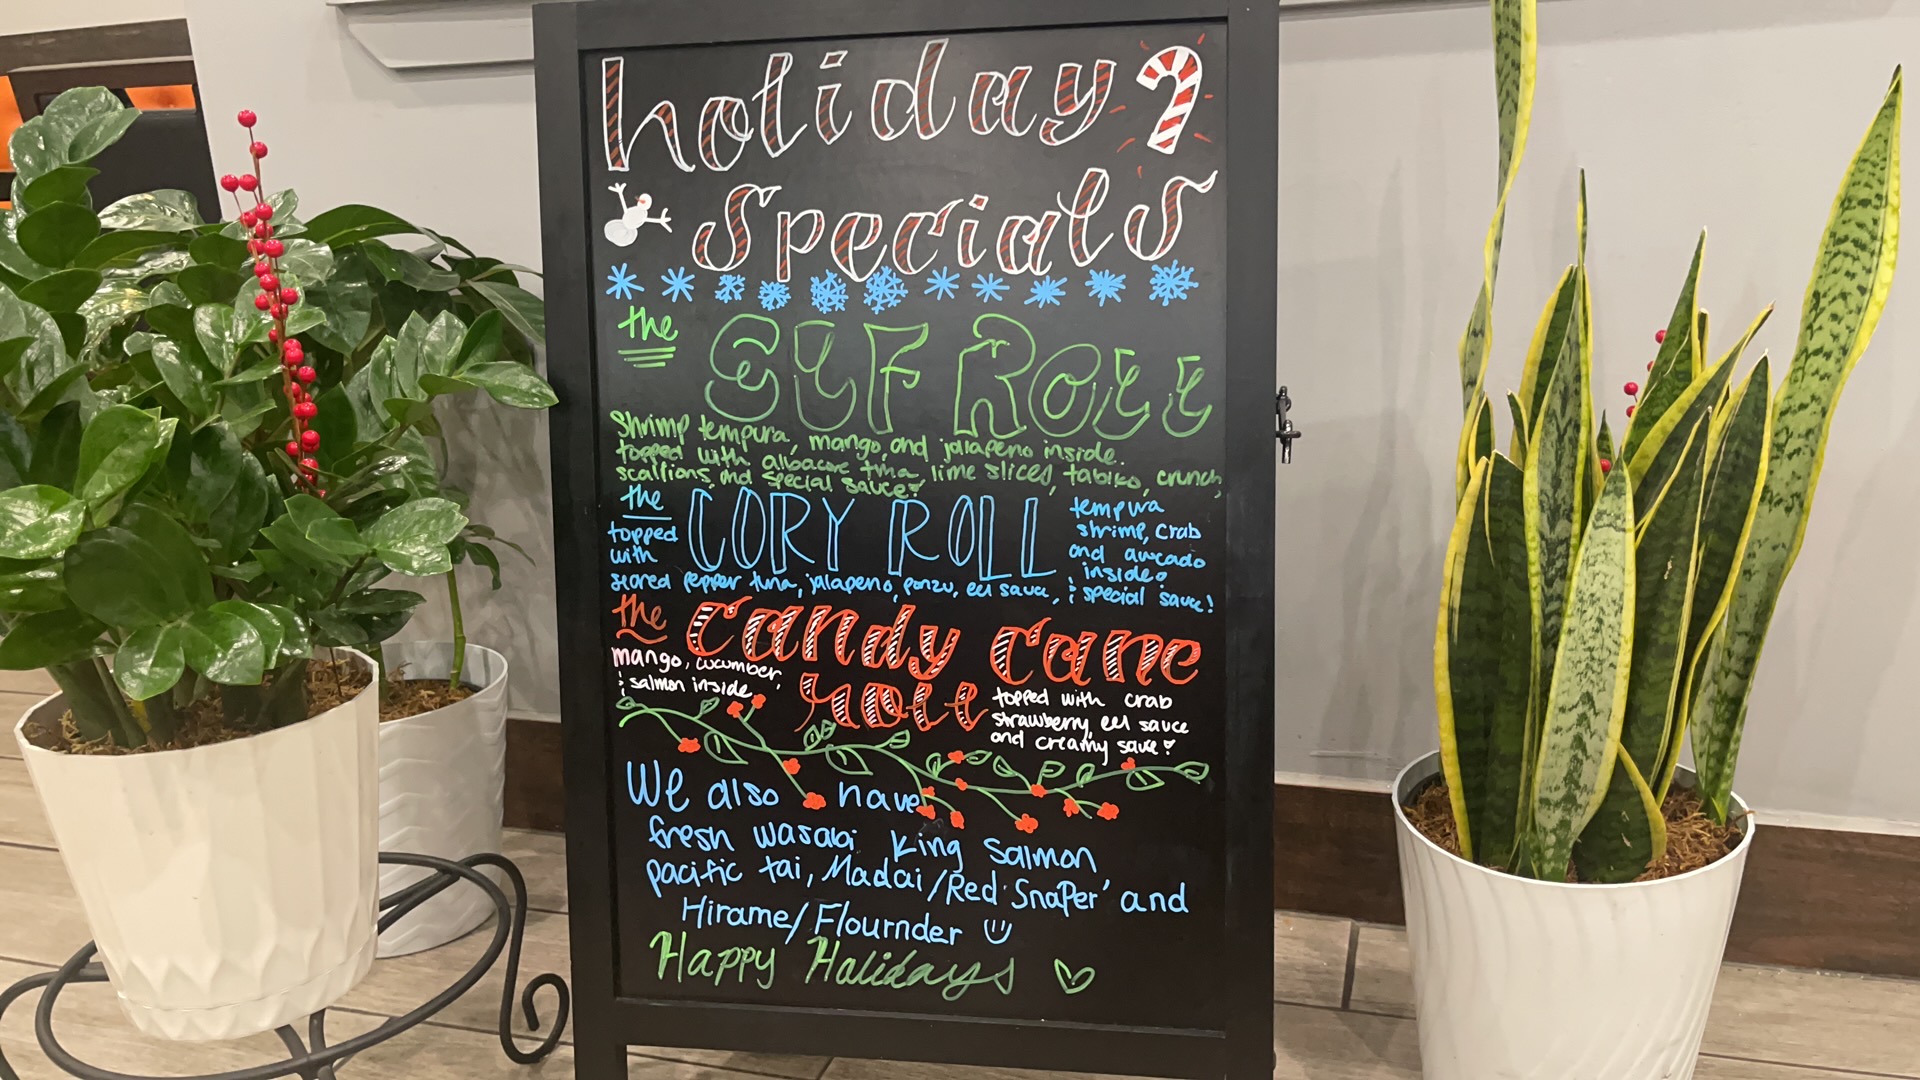 holiday
Specials
the
ELF Roll
Shrimp tempura, mango, and jalapeno inside.
topped with albacore tuna, lime slices, tobiko, crunch,
scallions, and special sauce!
the
CORY ROLL
tempura
shrimp, crab
and avocado
inside.
topped
with
seared pepper tuna, jalapeno, ponzu, eel sauce, & special sauce!
the candy cane
roll
mango, cucumber,
& salmon inside.
topped with crab
strawberry, eel sauce
and creamy sauce
We also have
fresh wasabi King Salmon
pacific tai, Madai/Red Snaper and
Hirame/Flournder
Happy Holidays